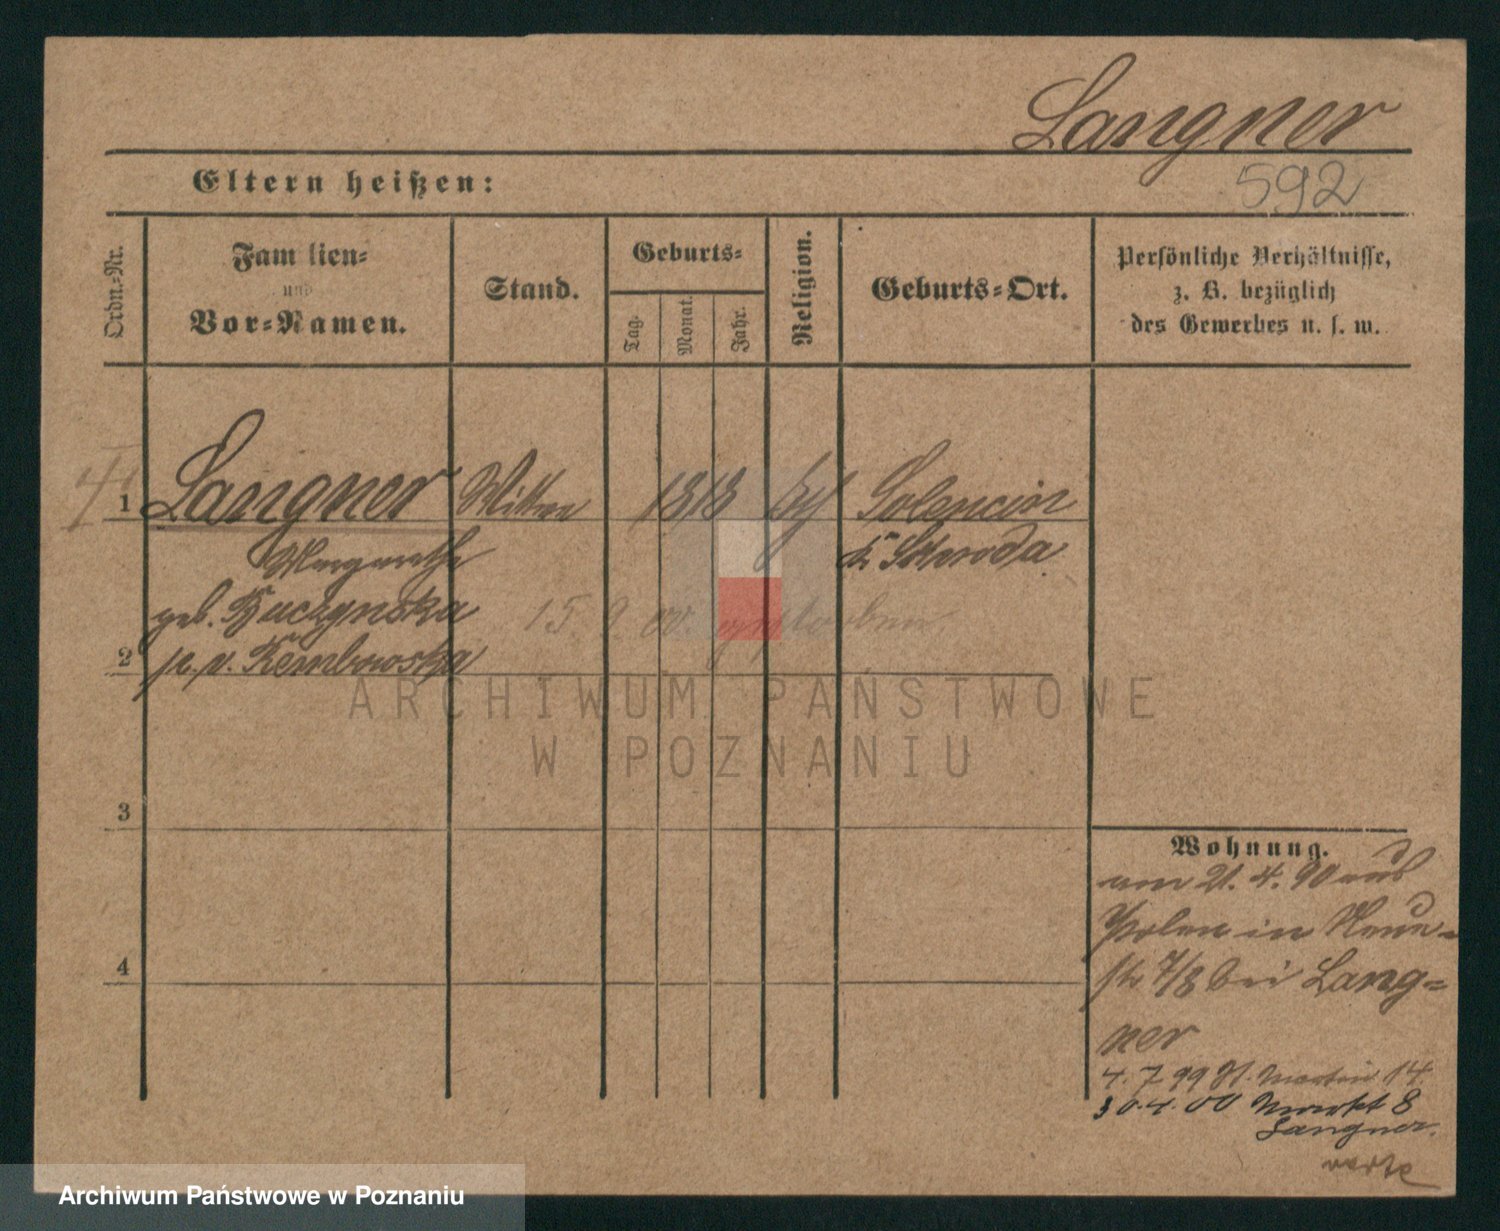 Langner
592
Eltern heißen:
Ordn.-Nr.
Familien-
und
Vor-Namen.
Stand.
Geburts-
Tag.
Monat.
Jahr.
Religion.
Geburts-Ort.
Persönliche Verhältnisse,
z. B. bezüglich
des Gewerbes u. s. w.
1 Langner Wittwe 1818
Margarethe Kr Schroda
geb. Kuczynska 15. 9. 00. gestorben
2 p. v. Rembowska
ARCHIWUM PAŃSTWOWE
W POZNANIU
3
4
Wohnung.
am 21. 4. 90 aus
Polen in Neue-
str 7/8 bei Lang-
ner
4. 7 99 St. Martin 14
30. 4. 00 Markt 8
Langner.
verte
Archiwum Państwowe w Poznaniu